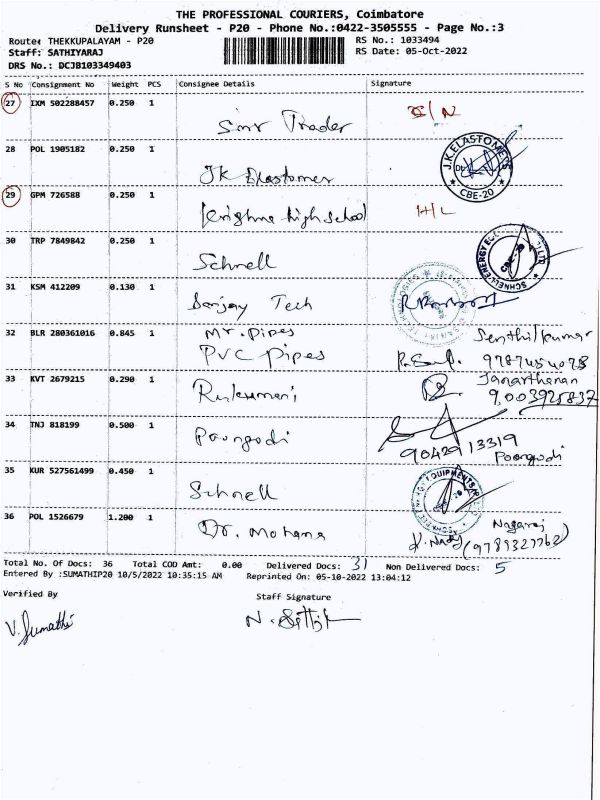 THE PROFESSIONAL COURIERS, Coimbatore
Delivery Runsheet - P20 - Phone No.:0422-3505555 - Page No.:3
Route: THEKKUPALAYAM - P20
RS No.: 1033494
Staff: SATHIYARAJ
RS Date: 05-Oct-2022
DRS No.: DCJB103349403
S No Consignment No Weight PCS Consignee Details Signature
27 IXM 502288457 0.250 1
Trader
28 POL 1905182 0.250 1
JK Elastomer
J.K.ELASTOMERS
CBE-20
29 GPM 726588 0.250 1
Krishna high school
H/L
30 TRP 7849842 0.250 1
Schnell
SCHNELL ENERGY
CBE-20
31 KSM 412209 0.130 1
Sanjay Tech
32 BLR 280361016 0.845 1
Mr. Pipes
PVC Pipes
Senthilkumar
33 KVT 2679215 0.290 1
Rukumani
Janarthanan
9003925837
34 TNJ 818199 0.500 1
Poongodi
9042913319
Poongodi
35 KUR 527561499 0.450 1
Schnell
36 POL 1526679 1.200 1
Dr. Mohana
Nagaraj
Total No. Of Docs: 36 Total COD Amt: 0.00 Delivered Docs: 31 Non Delivered Docs: 5
Entered By :SUMATHIP20 10/5/2022 10:35:15 AM Reprinted On: 05-10-2022 13:04:12
Verified By
Staff Signature
V. Sumathi